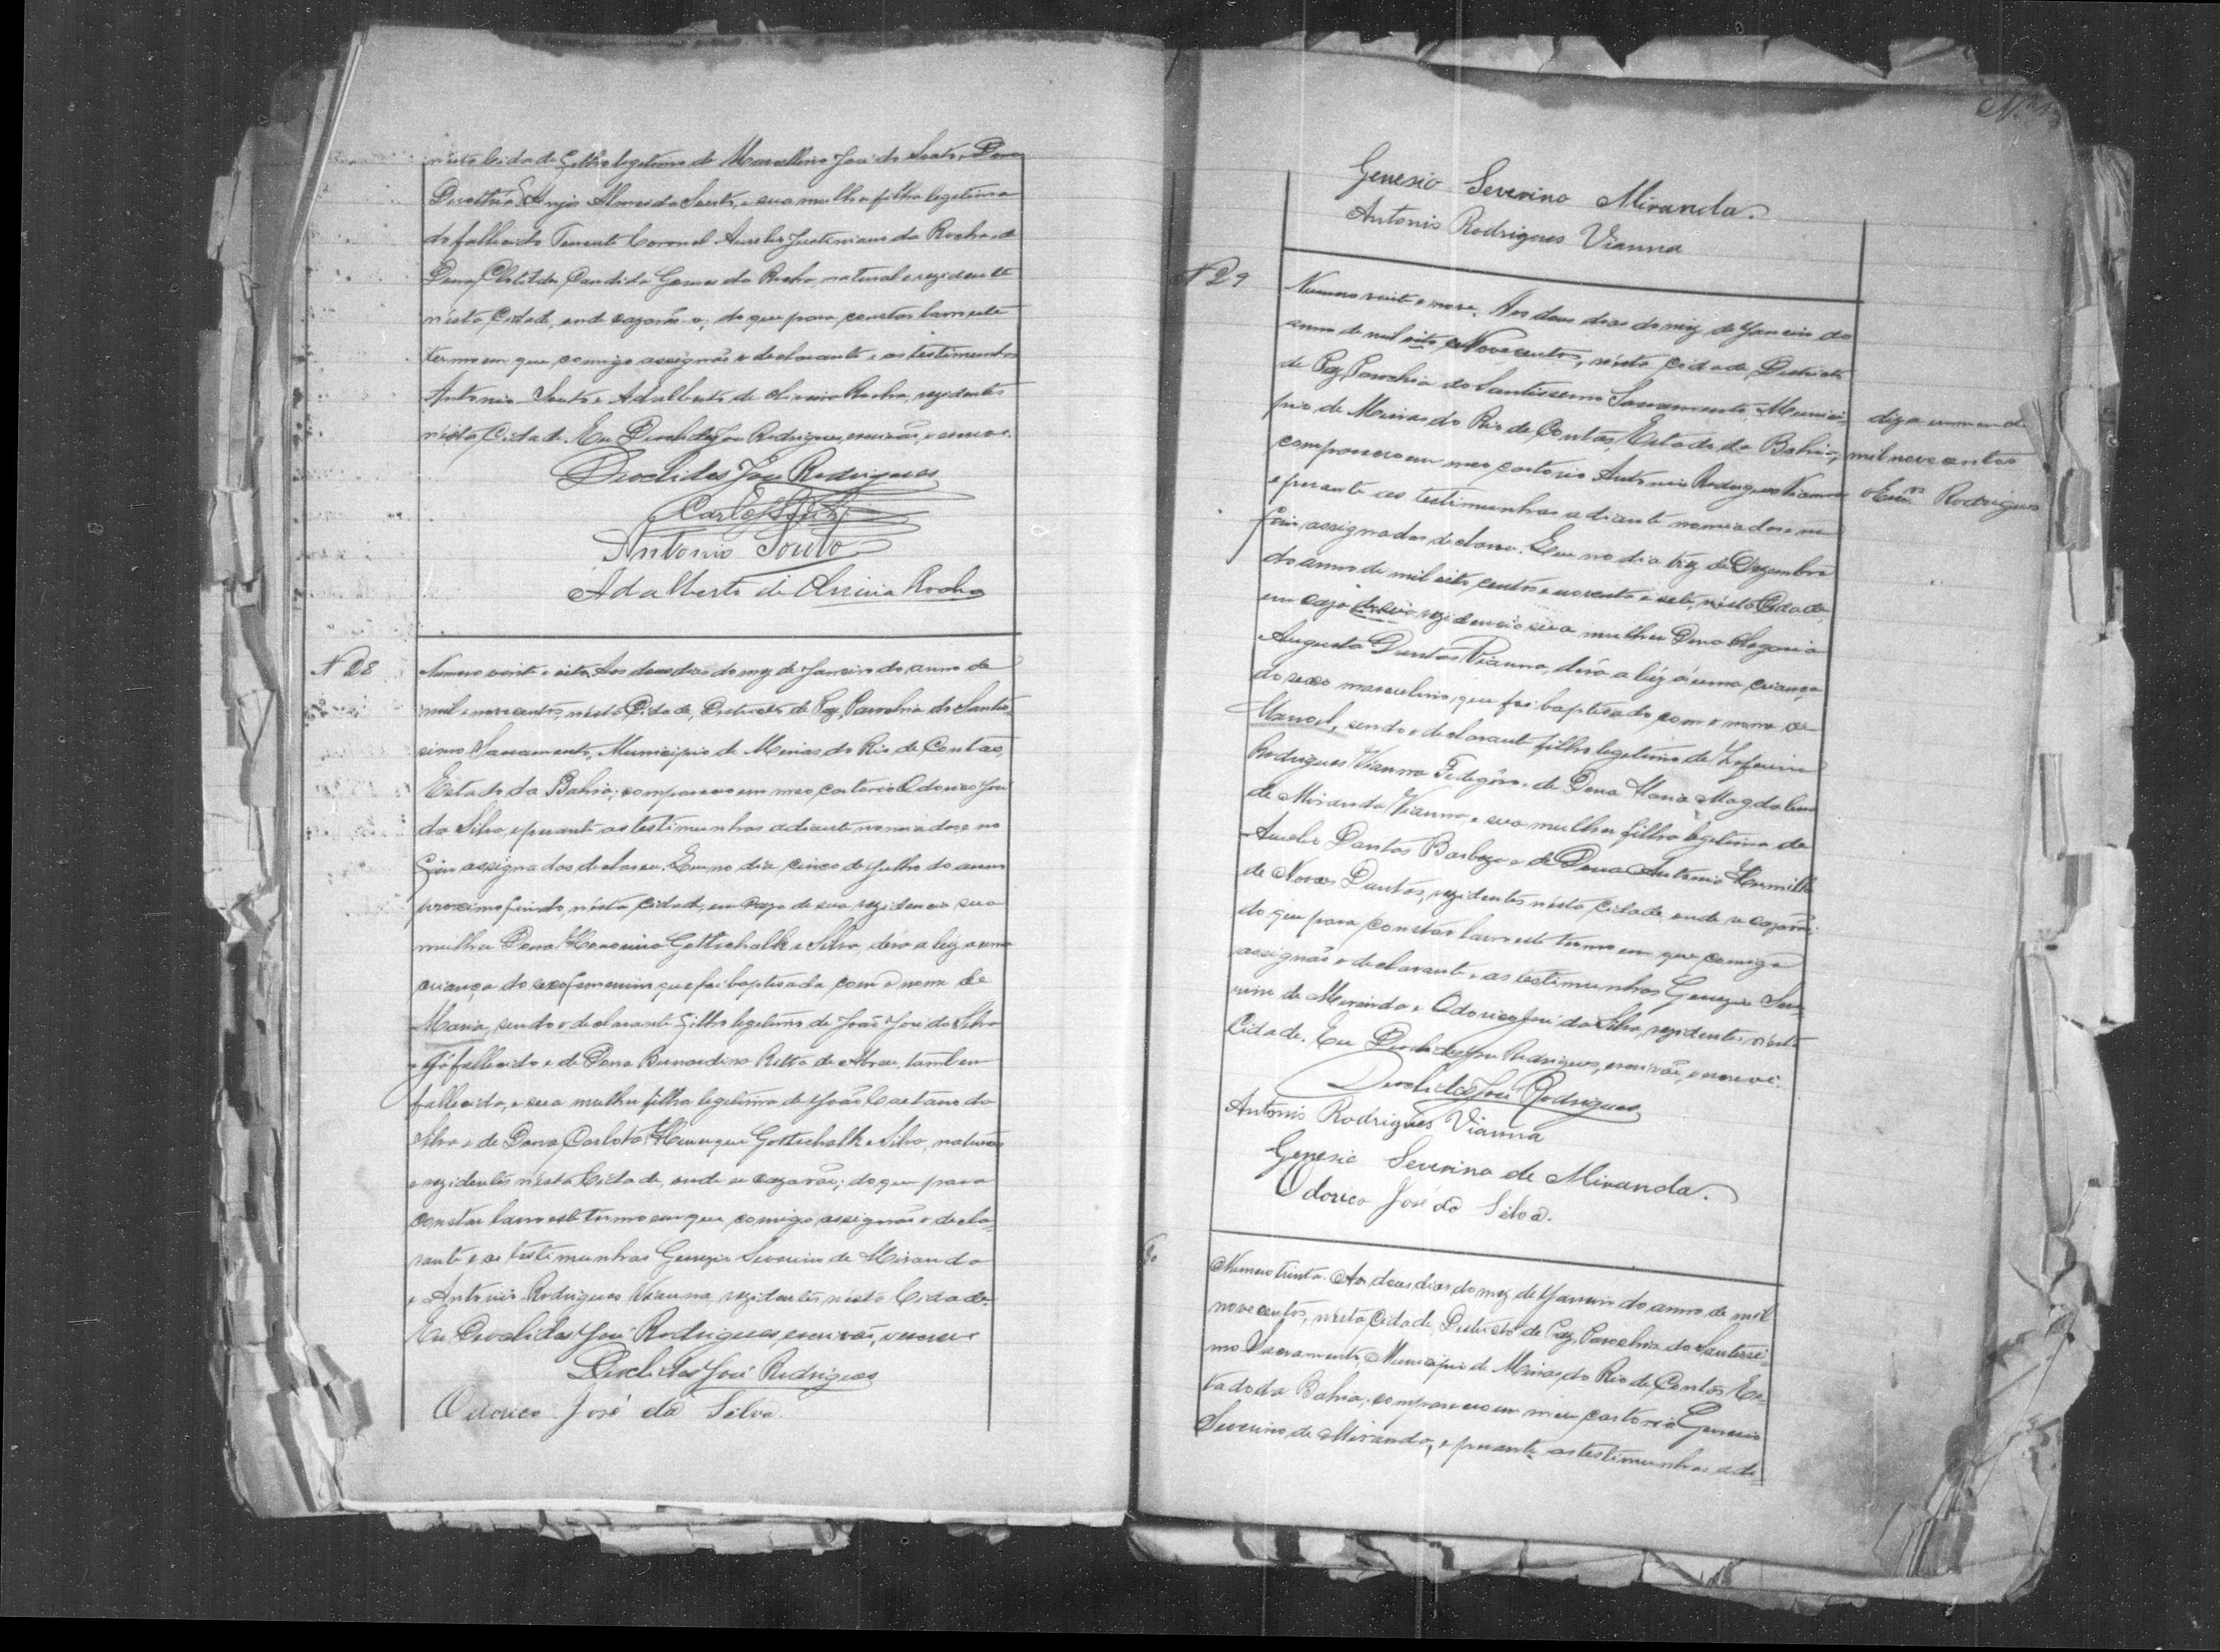 nesta Cidade, filho legitimo de Marcellino José do Souto, e Dona
Dorothéa Anjos Almeida Souto, e sua mulher filha legitima
do fallecido Tenente Coronel Aurelio Justiniano da Rocha e de
Dona Clotildes Candida Gomes da Rocha, natural e rezidente
nésta Cidade, onde cazarão-se; do que para constar lavro este
termo em que comigo assignão o declarante e as testimunhas
Antonio Souto e Adalberto de Oliveira Rocha, rezidentes
nésta Cidade. Eu Dioclides José Rodrigues, escrivão, o escrevi.
Dioclides José Rodrigues
Carlos Souto
Antonio Souto
Adalberto de Oliveira Rocha
N 28
Numero vinte e oito. Aos dous dias do mez de Janeiro do anno de
mil e novecentos, nésta Cidade, Districto de Paz, Parochia do Santis-
simo Sacramento, Municipio de Minas do Rio de Contas,
Estado da Bahia; compareceo em meo cartorio Odorico José
da Silva, e perante as testimunhas adiante nomeadas e no
fim assignadas declarou: Que no dia cinco de Julho do anno
proximo findo, nésta cidade, em caza de sua rezidencia sua
mulher Dona Gottschalk e Silva, déra a luz a uma
criança do sexo femenino que foi baptisada com o nome de
Maria, sendo o declarante filho legitimo de João José da Silva
já fallecido e de Dona Bernardina Ritta de Abreu, tambem
fallecida, e sua mulher filha legitima de João Caetano da
Silva e de Dona Carlota Gottschalk e Silva, naturaes
e rezidentes nésta Cidade, onde se cazarão; do que para
constar lavro este termo em que comigo assignão o decla-
rante e as testimunhas Genezio Severino de Miranda
e Antonio Rodrigues Vianna, rezidentes nésta Cidade.
Eu Dioclides José Rodrigues, escrivão, o escrevi
Dioclides José Rodrigues
Odorico José da Silva
Genesio Severino Miranda.
Antonio Rodrigues Vianna
N 29
Numero vinte e nove. Aos dous dias do mez de Janeiro do
anno de mil oito e Novecentos, nésta cidade, Districto
de Paz, Parochia do Santissimo Sacramento, Munici-
pio de Minas do Rio de Contas, Estado da Bahia;
compareceo em meo cartorio Antonio Rodrigues Vianna
e perante as testimunhas adiante nomeadas e no
fim assignadas declarou: Que no dia trez de Dezembro
do anno de mil oito centos e noventa e sete, nésta Cidade,
em caza de sua rezidencia sua mulher Dona Olegaria
Augusta Dantas Vianna, déra a luz á uma criança
do sexo masculino, que foi baptisado com o nome de
Manoel, sendo o declarante filho legitimo de Zeferino
Rodrigues Vianna e de Dona Maria Magdalena
de Miranda Vianna, e sua mulher filha legitima de
Aurelio Dantas Barboza e de Dona Antonia Hermilla
de Novaes Dantas, rezidentes nésta cidade onde se cazarão;
do que para constar lavro este termo em que comigo
assignão o declarante e as testimunhas Genezio Seve-
rino de Miranda e Odorico José da Silva, rezidentes nésta
Cidade. Eu Dioclides José Rodrigues, escrivão, o escrevi.
Dioclides José Rodrigues
Antonio Rodrigues Vianna
Genesio Severino de Miranda.
Odorico José da Silva.
digo
mil nove centos
o Escm. Rodrigues
30
Numero trinta. Aos dous dias do mez de Janeiro do anno de mil
nove centos, nésta Cidade, Districto de Paz, Parochia do Santissi-
mo Sacramento, Municipio de Minas do Rio de Contas, Es-
tado da Bahia; compareceo em meu cartorio Genesio
Severino de Miranda, e perante as testimunhas adi-